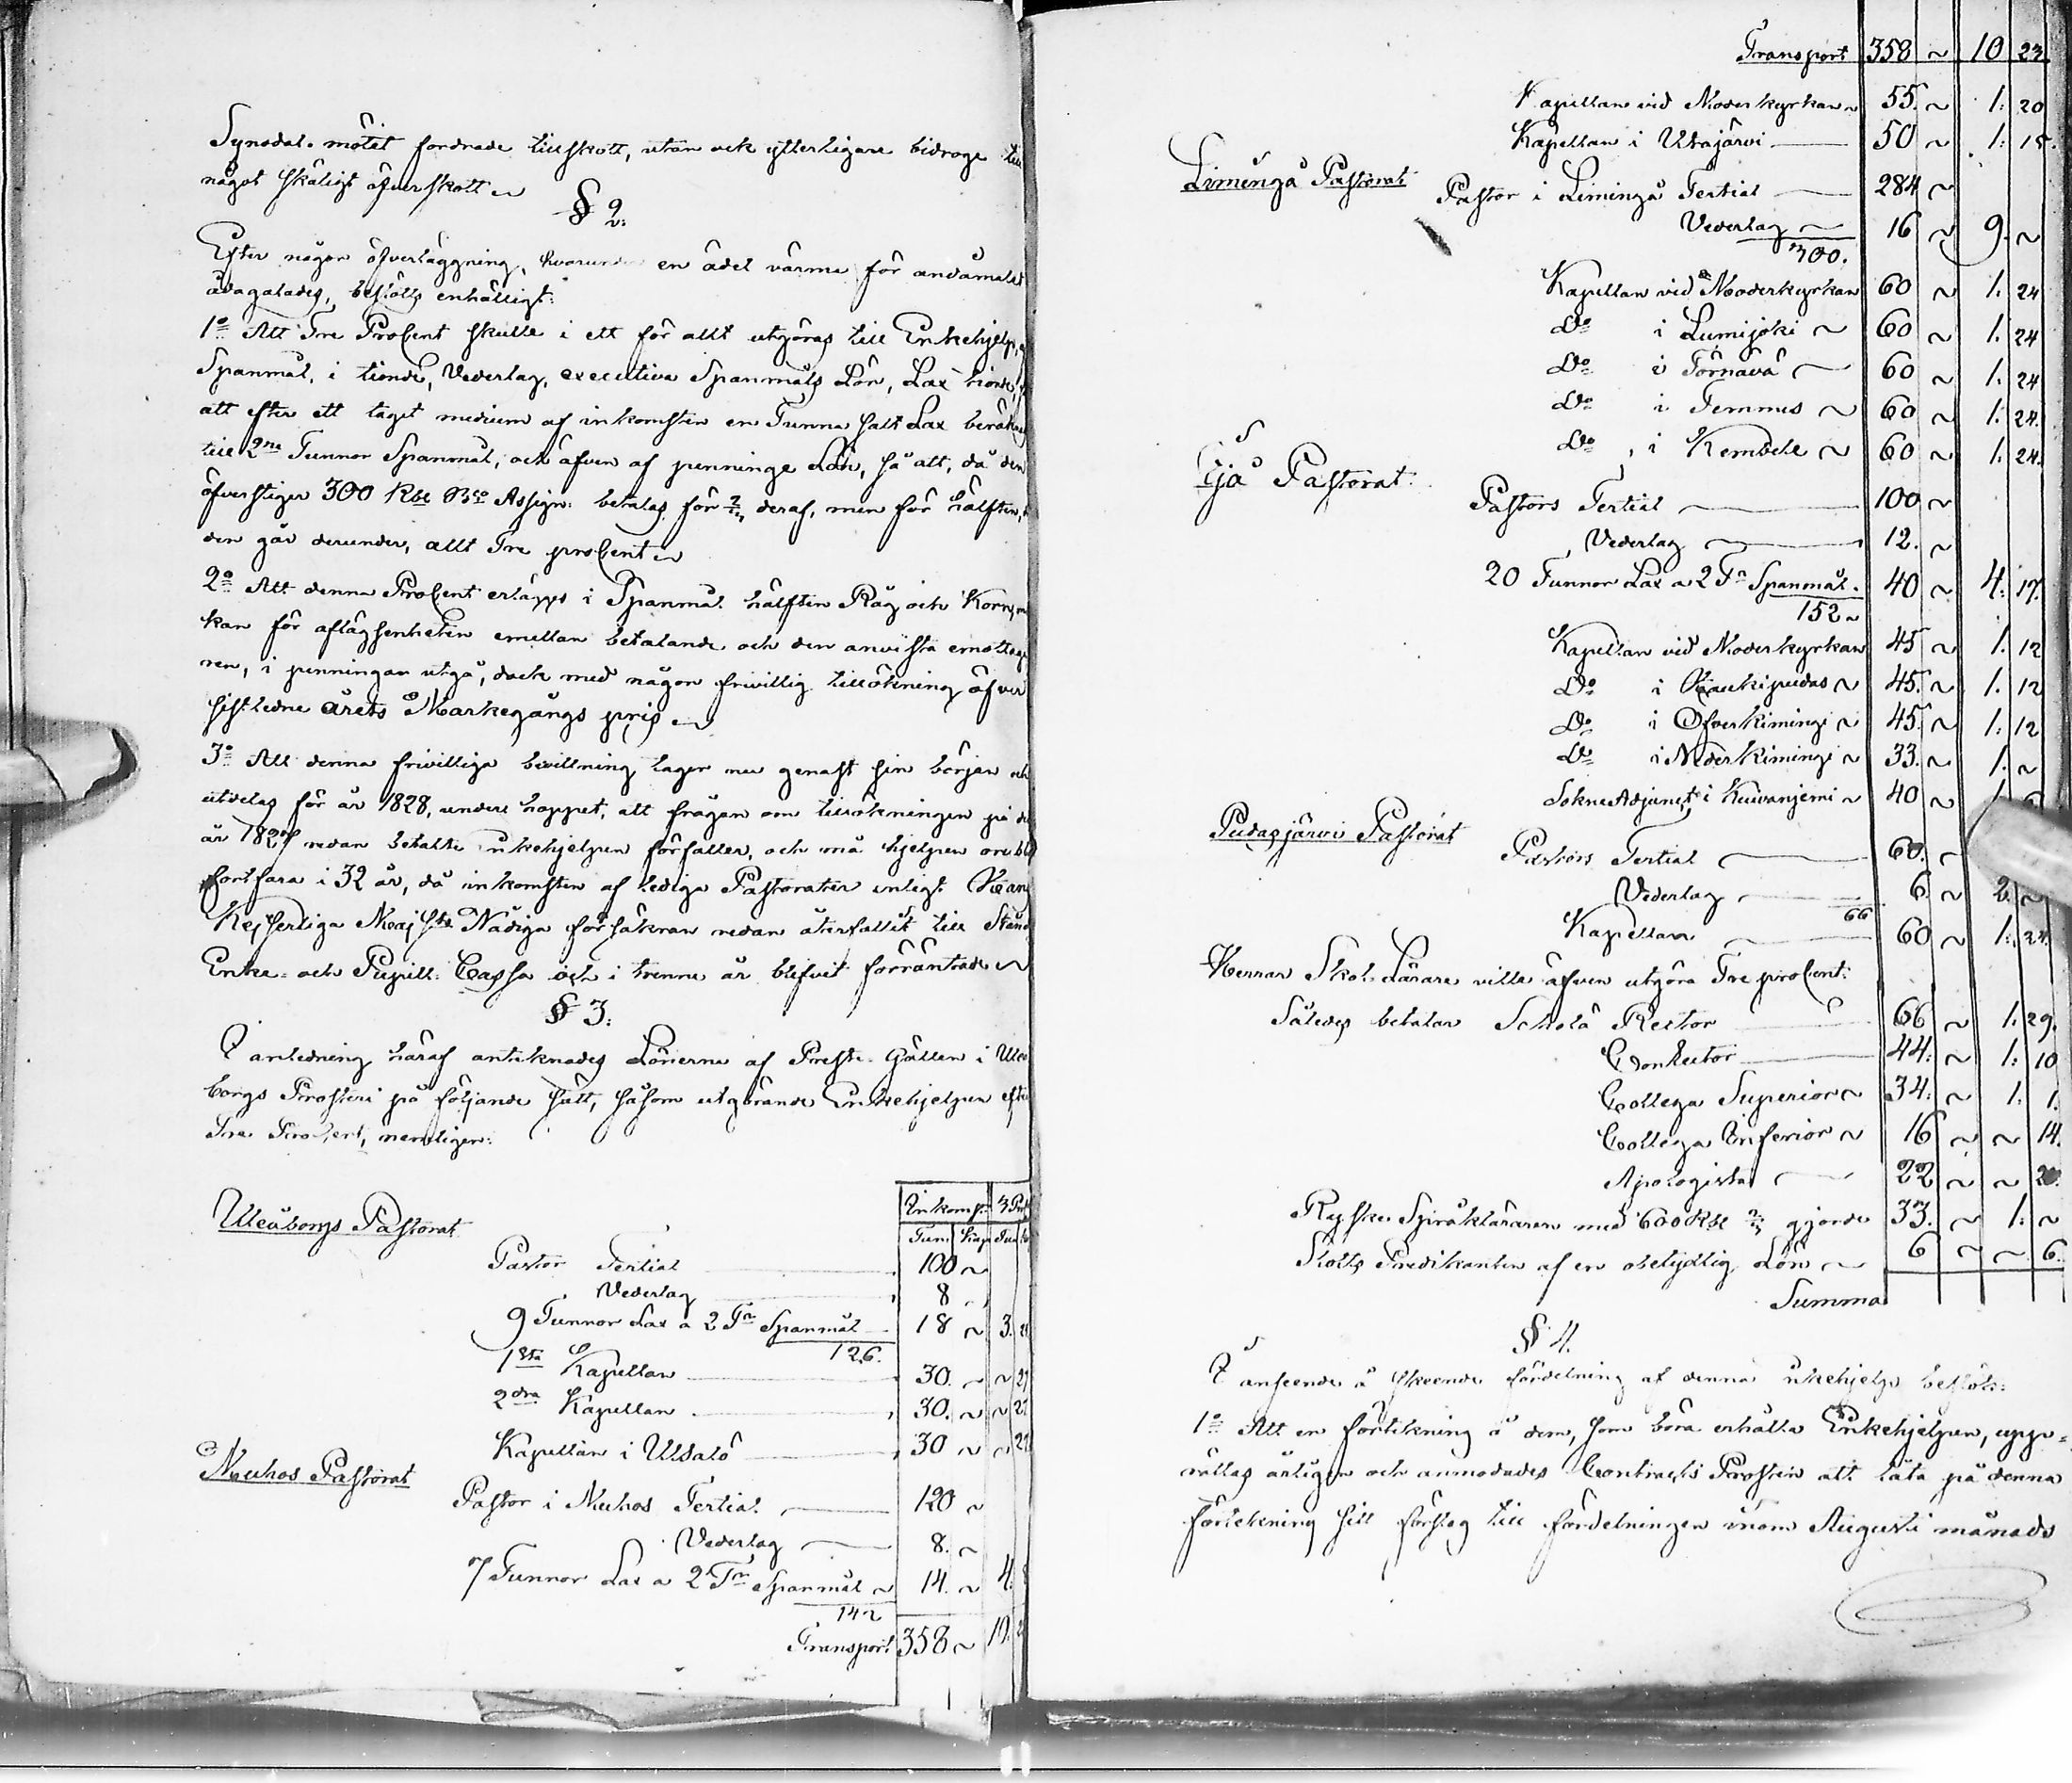 Synodal-mötet fordrade tillskott, utan ock ytterligare bidroge till
något skäligt öfverskott
§ 2:
Efter någon öfverläggning, hvarunder en ädel värma för ändamålet
ådagalades, beslöts enhälligt:
1o Att Tre ProCent skulle i ett för allt utgöras till Enkehjelp,
Spanmål, i tionde, Vederlag, executiva Spanmåls Lön, Lax tionde,
att efter ett taget medium af inkomsten en Tunna salt Lax beräknas
till 2ne Tunnor Spanmål, och äfven af penninge Lön, så att, då den
öfverstiger 300 Rbl Bco Assign: betalas för 2/3 deraf, men för hälften,
den går derunder, allt Tre proCent
2o Att denna ProCent erlägges i Spanmål hälften Råg och Korn,
kan för aflägsenheten emellan betalande och den anviste emottaga
ren, i penningar utgå, dock med någon frivillig tillökning öfver
sistledne årets Markegångs pris
3o Att denna frivilliga bevillning tager nu genast sin början och
utdelas för år 1828, under hoppet, att frågan om tillökningen på
år 1827 redan betalte enkehjelpen förfaller, och må hjelpen
fortfara i 32 år, då inkomsten af lediga Pastorater enligt
Kejserliga Majsts Nådiga försäkran redan återfallit till Stånd
Enke- och Pupill-Cassa och i trenne år blifvit förräntade
§ 3:
I anledning häraf antecknades Lönerna af Preste-Gällen i Uleå
borgs Prosteri på följande sätt, såsom utgörande Enkehjelpen efter
Tre ProCent, nemligen:
Inkomst 3 Pro
Uleåborgs Pastorat Tun Kap Tun
Pastor Tertial 100 ~
Vederlag 8 ~
9 Tunnor Lax a 2 Tr Spanmål 18 ~ 3.
126.
1sta Kapellan 30. ~ ~ 27
2dra Kapellan 30. ~ ~ 27
Kapellan i Uloalö 30 ~ ~ 27
Muhos Pastorat
Pastor i Muhos Tertial 120 ~
Vederlag 8. ~
7 Tunnor Lax a 2 Tr Spanmål ~ 14. ~ 4. 8
142
Transport 358 ~ 10.
Transport 358 ~ 10 23
Kapellan vid Moderkyrkan 55. ~ 1: 20
Kapellan i Utajärvi 50 ~ 1: 15.
Limingå Pastorat
Pastor i Limingå Tertial 284 ~
Vederlag 16 ~ 9. ~
300.
Kapellan vid Moderkyrkan 60 ~ 1. 24
Do i Lumijoki ~ 60 ~ 1. 24
Do i Törnävä 60 ~ 1. 24
Do i Temmes ~ 60 ~ 1. 24.
Do i Kembele ~ 60 ~ 1. 24.
Ijå Pastorat:
Pastors Tertial 100 ~
Vederlag 12. ~
20 Tunnor Lax a 2 Tr Spanmål. 40 ~ 4. 17.
152 ~
Kapellan vid Moderkyrkan 45 ~ 1. 12
Do i Haukipudas ~ 45. ~ 1. 12
Do i Öfverkiminge ~ 45. ~ 1: 12
Do i Nederkiminge ~ 33. ~ 1. ~
SokneAdjunct i Kuivaniemi ~ 40 ~ 1. 6
Pudasjärvi Pastorat
Pastors Tertial 60. ~
Vederlag 6. ~ 2. ~
66
Kapellan 60 ~ 1. 24.
Herrar Skol-Lärare ville äfven utgöra Tre proCent:
Således betalar Schola Rector 66 ~ 1. 29.
Conrector 44. ~ 1: 10
Collega Superior ~ 34. ~ 1. 1.
Collega Inferior ~ 16 ~ ~ 14.
Apologista 22 ~ ~ 20.
Ryske Språkläraren med 600 Rbl 2/3 gjorde 33. ~ 1. ~
Slotts Predikanten af en obetydlig Lön ~ 6 ~ ~ 6.
Summa
§ 4.
I anseende å skeende fördelning af denna enkehjelp beslöts:
1o Att en förtekning å dem, som böra erhålla Enkehjelpen, upp-
rättas årligen och anmodades Contracts Prosten att låta på denna
förtekning till förslag till fördelningen inom Augusti månads